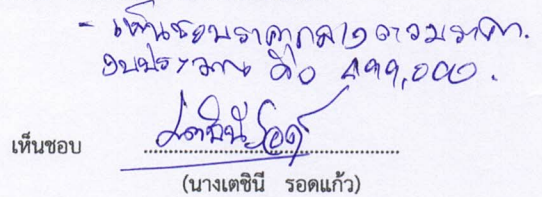 - เห็นชอบราคากลางตามราคา.
งบประมาณ คือ 499,000.
เห็นชอบ ........................................
(นางเตชินี รอดแก้ว)